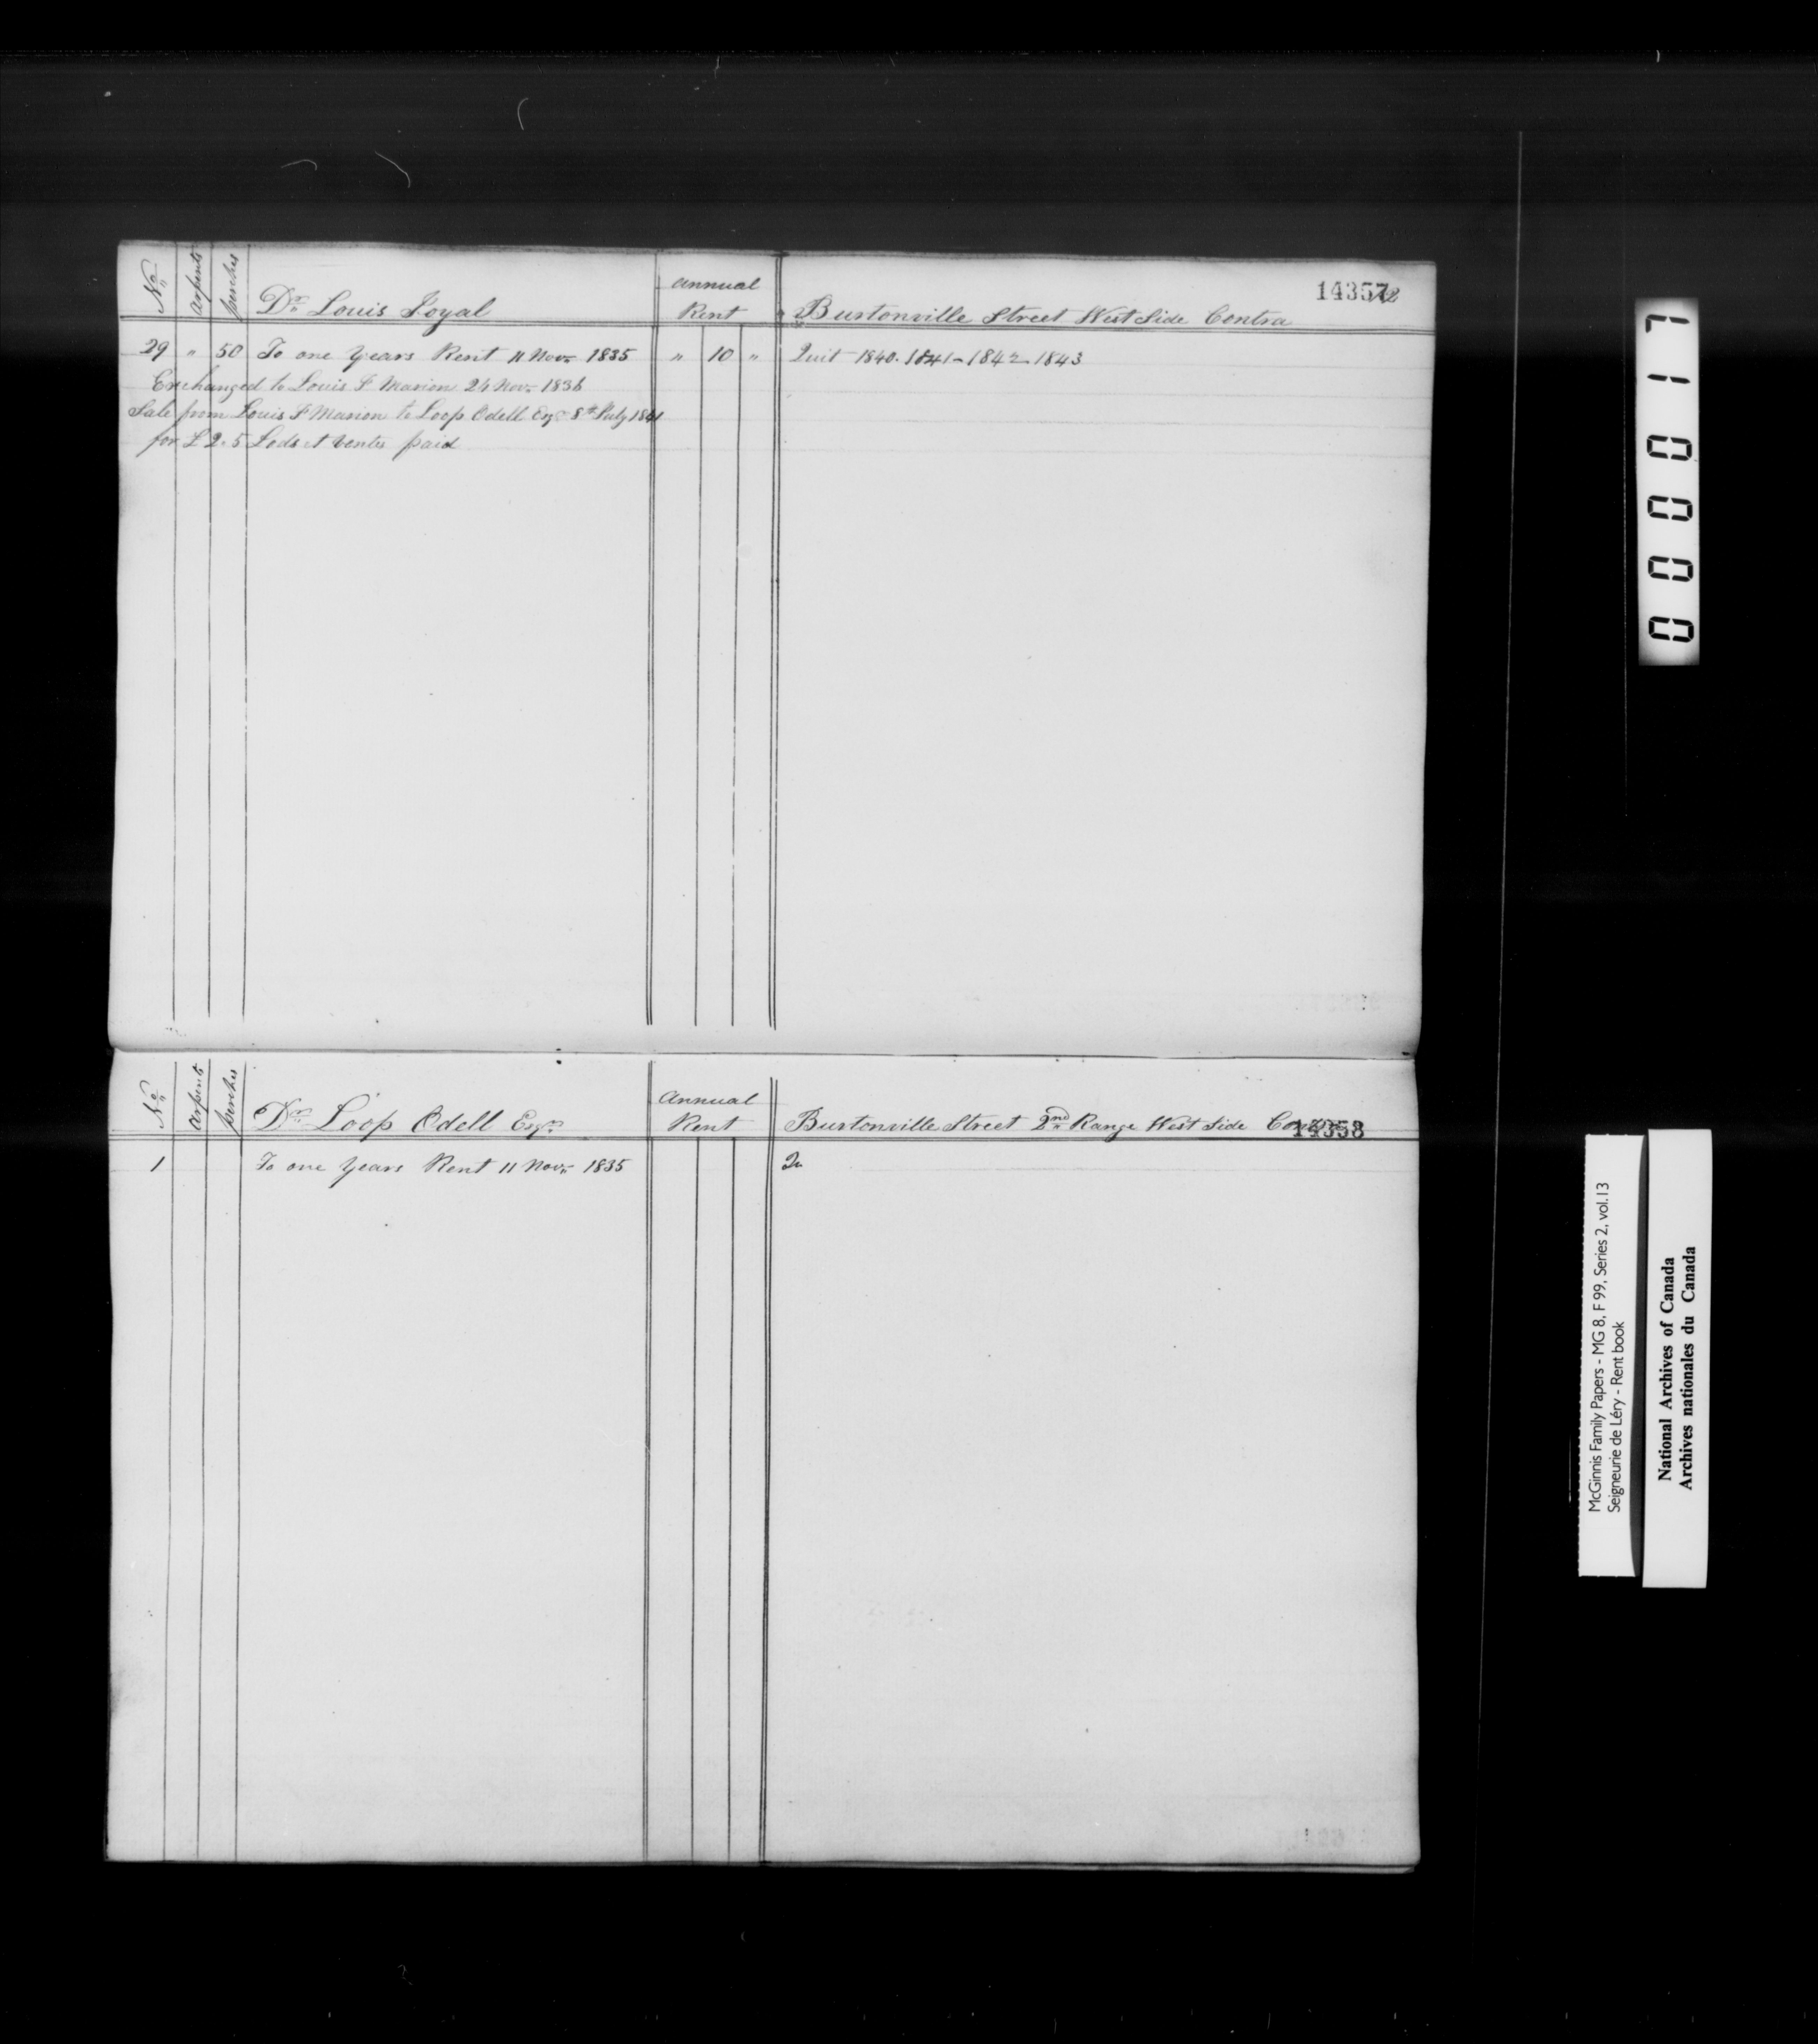 No. arpents perches Dr. Louis Foyal annual Rent Burtonville Street West Side Contra 14357
29 " 50 To one Years Rent 11 Novr. 1835 " 10 " Quit 1840. 1841 - 1842 - 1843
Exchanged to Louis F Marion 24 Novr. 1836
Sale from Louis F Marion to Loop Odell Esqr 8th July 1841
for £ 2.5 Lods et Ventes paid
No. arpents perches Dr. Loop Odell Esqr. Annual Rent Burtonville Street 2nd Range West Side Contra 14358
1 To one Years Rent 11 Novr. 1835 Qu
000017
McGinnis Family Papers - MG 8, F 99, Series 2, vol.13
Seigneurie de Léry - Rent book
National Archives of Canada
Archives nationales du Canada